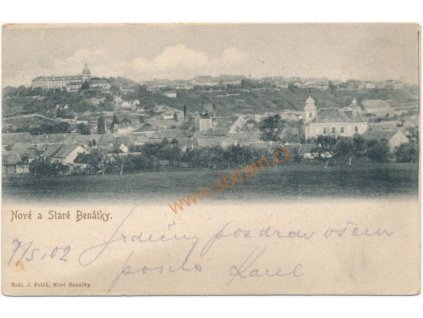 Nové a Staré Benátky.
7/5. 02 Srdečný pozdrav všem
posílá Karel
Nakl. J. Polák, Nové Benátky.